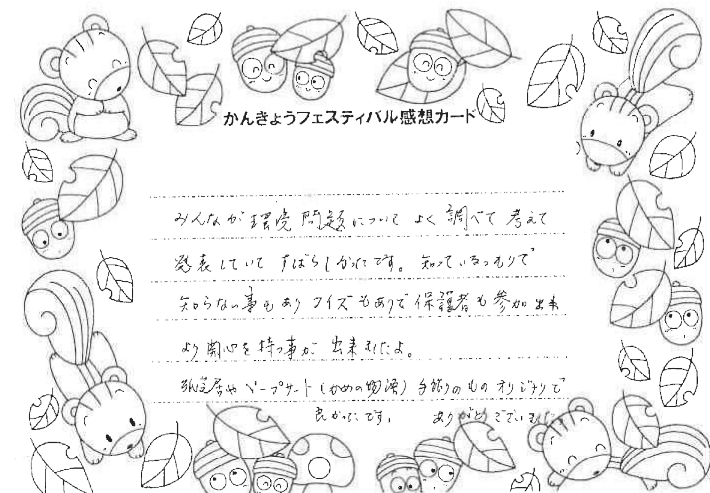 かんきょうフェスティバル感想カード
みんなが環境問題について よく調べて 考えて
発表していて すばらしかったです。知っているつもりで
知らない事もあり クイズもありで 保護者も参加出来
より関心を持つ事が 出来ましたよ。
紙芝居やペープサート(かめの物語) 手作りのもの オリジナリで
良かったです。 ありがとうございました。